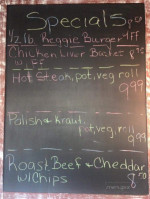 Specials
1/2 lb Reggie Burger
Chicken Liver
Hot Steak, pot, veg, roll
9.99
Polish & Kraut,
pot, veg, roll
9.99
Roast Beef & Cheddar
w/ Chips